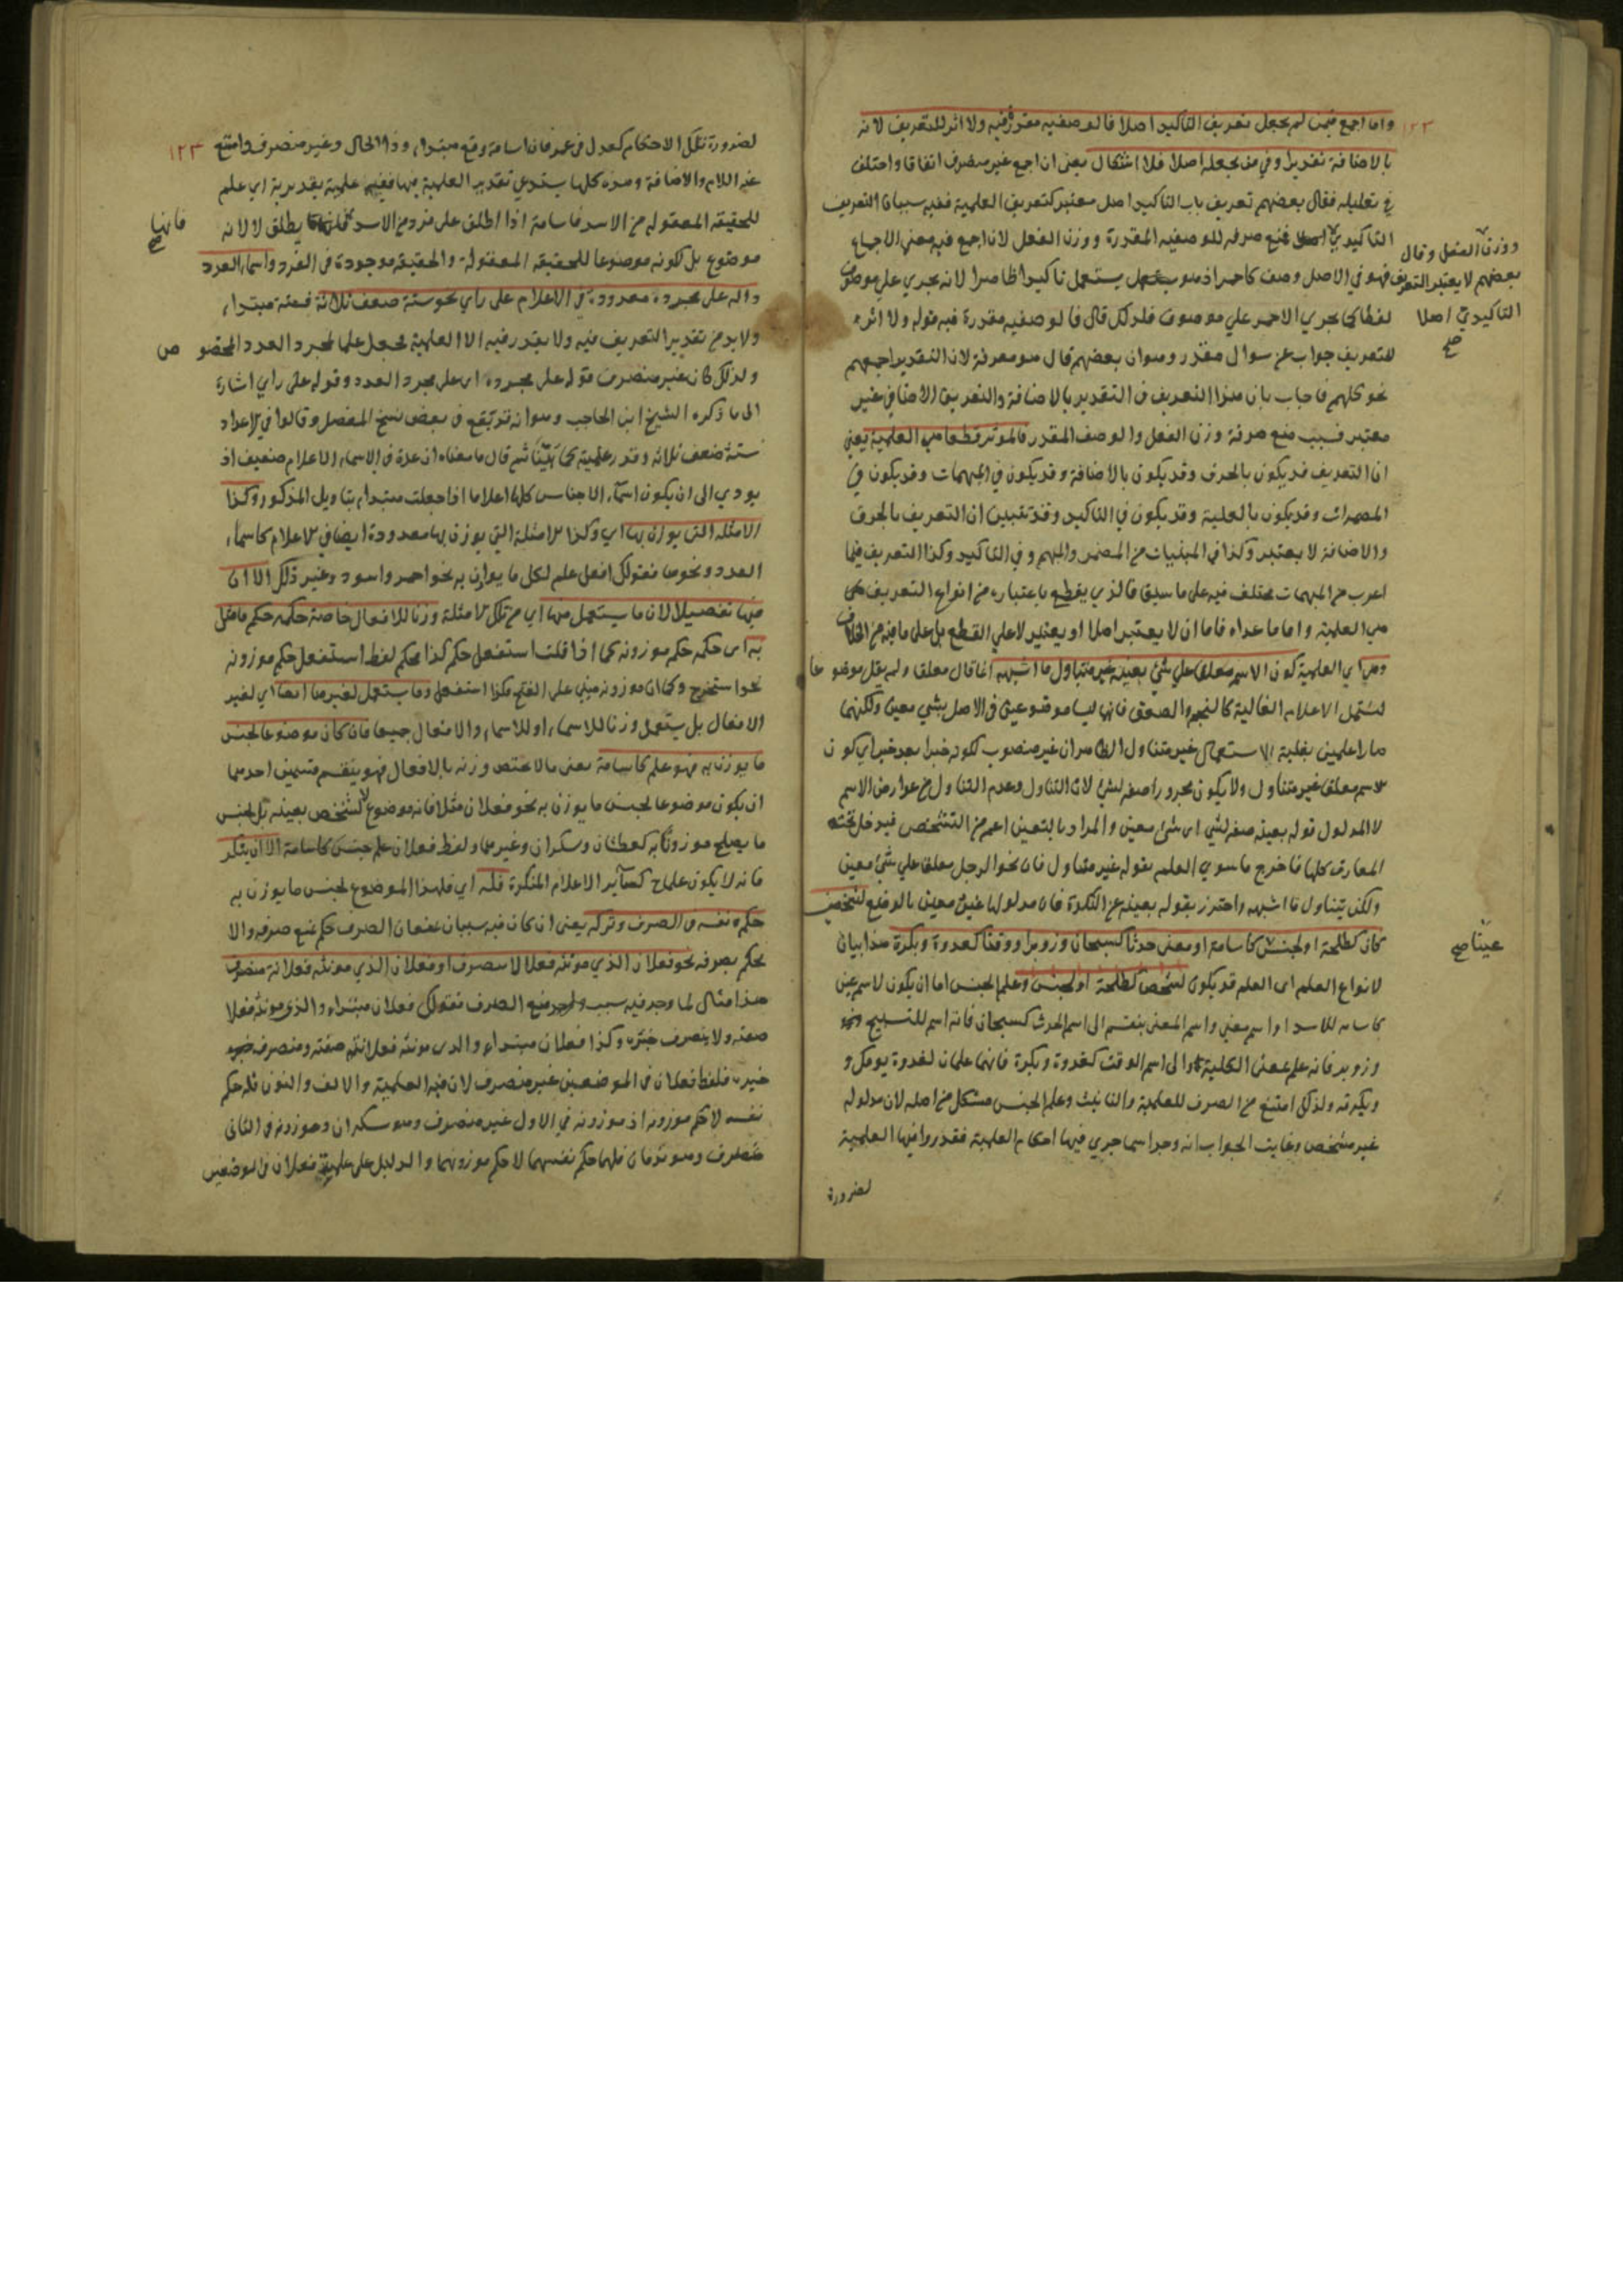 واما اجمع فيمن لم يجعل تعريف التاكيد اصلا فالوصفيه مقدرة فيه ولا اثر للتعريف لانه
بالاضافة تقديرا وفي من يجعله اصلا فلا اشكال يعنى ان اجمع غير منصرف اتفاقا واختلف
في تعليله فقال بعضهم تعريف باب التاكيد اصل معتبر كتعريف العلمية ففيه سببان التعريف
التاكيدي فمنع صرفه للوصفيه المقدرة ووزن الفعل لان اجمع فيه معنى الاجماع
ووزن الفعل وقال
بعضهم لا يعتبر التعريف
التاكيدي اصلا
صح
فهو في الاصل وصف كاحمر اذ هو يستعمل تاكيدا ظاهرا لانه يجري على موصوف
لفظا كما يجري الاحمر على موصوف فلذلك قال فالوصفيه مقدرة فيه قوله ولا اثر
للتعريف جواب عن سوال مقدر وهو ان بعضهم قال هو معرفة لان التقدير اجمعهم
نحو كلهم فاجاب بان هذا التعريف في التقدير بالاضافة والتعريف الاضافي غير
معتبر فسبب منع صرفه وزن الفعل والوصف المقدر فالموثر قطعا هي العلمية يعني
ان التعريف قد يكون بالحرف وقد يكون بالاضافة وقد يكون في المبهمات وقد يكون في
المضمرات وقد يكون بالعلمية وقد يكون في التاكيد وقد تبين ان التعريف بالحرف
والاضافة لا يعتبر وكذا في المبنيات من المضمر والمبهم وفي التاكيد وكذا التعريف فيما
اعرب من المبهمات مختلف فيه على ما سبق فالذي يقطع باعتباره من انواع التعريف
هي العلمية واما ما عداه فاما ان لا يعتبر اصلا او يعتبر لا على القطع بل على ما فيه من الخلاف
وهي اي العلمية كون الاسم معلق على شئ بعينه غير متناول ما اشبهه انما قال معلق ولم يقل موضوعا
لتشتمل الاعلام الغالبة كالنجم والصعق فانها ليسا موضوعين في الاصل بشي معين ولكنهما
صارا علمين بغلبة الاستعمال غير متناول الظاهر ان غير منصوب لكونه خبرا بعد خبر اي كون
الاسم معلق غير متناول ولا يكون مجرورا صفه لشئ لان التناول وعدم التناول من عوارض الاسم
لا المدلول قوله بعينه صفه لشي اى شئ معين والمراد بالتعين اعم من التشخص فيدخل تحته
المعارف كلها فاخرج ما سوي العلم بقوله غير متناول فان نحو الرجل معلق على شئ معين
ولكن يتناول ما اشبهه واحترز بقوله بعينه عن النكرة فان مدلولها غير معين بالوضع لشخص
كان كطلحة او لجنس كاسامة او معنى حدثا كسبحان وزوبرا ووقتا كغدوة وبكرة هذا بيان
عينا صح
لانواع العلم اى العلم قد يكون لشخص كطلحة او لجنس وعلم الجنس اما ان يكون لاسم عين
كاسامه للاسد او اسم معني واسم المعنى ينقسم الى اسم الحدث كسبحان فانه اسم للتسبيح
وزوبر فانه علم بمعنى الكلية والى اسم الوقت كغدوة وبكرة فانهما علمان لغدوة يومك و
وبكرته ولذلك امتنع من الصرف للعلمية والتانيث وعلم الجنس مشكل من اصله لان مدلوله
غير مشخص وغايت الجواب انه وجد اسما جري فيها احكام العلمية فقدروا فيها العلمية
لضرورة
١٢٣
لضرورة تلك الاحكام كعدل في عمر فان اسامة وقع مبتداء وذا الحال وغير منصرف وامتنع
عنه اللام والاضافة وهذه كلها يستدعي تقدير العلمية فيها ففيها علمية تقديرية اي علم
للحقيقه المعقولة من الاسد فاسامة اذا اطلق على فرد من الاسد يطلق لا لانه
فانها
صح
موضوع بل لكونه موضوعا للحقيقه المعقولة والحقيقه موجودة في الفرد واسماء العدد
داله على مجرده معدودة في الاعلام على راي نحو ستة ضعف ثلاثة فستة مبتداء
ولا بد من تقدير التعريف فيه ولا يقدر فيه الا العلمية فجعل علما لمجرد العدد المخصوص
ولذلك كان غير منصرف قوله على مجرده اى على مجرد العدد وقوله على راي اشارة
الى ما ذكره الشيخ ابن الحاجب وهو انه قد يقع في بعض نسخ المفصل وقالوا في الاعداد
ستة ضعف ثلاثة وقدر علمية ثم قال ما معناه ان عده في الاسماء الاعلام ضعيف اذ
يودي الى ان يكون اسماء الاجناس كلها اعلاما اذا جعلت مبتداء بتاويل المذكور وكذا
الامثلة التى يوزن بها اي وكذا الامثلة التي يوزن بها معدودة ايضا في الاعلام كاسماء
العدد ونحوها فقولك افعل علم لكل ما يوازن به نحو احمر واسود وغير ذلك الا ان
فيها تفصيلا لان ما يستعمل منها اي من تلك الامثلة وزنا للافعال خاصة حكمه حكم ما مثل
به اى حكمه حكم موزونه كما اذا قلت استفعل حكم كذا محكم لفظ استفعل حكم موزونه
نحو استخرج وكما ان موزونه مبني على الفتح هكذا استفعل وما يستعمل لغيرها ايضا اي لغير
الافعال بل يستعمل وزنا للاسماء او للاسماء والافعال جميعا فان كان موضوعا لجنس
ما يوزن به فهو علم كاسامة يعنى ما لا يختص وزنه بالافعال فهو ينقسم قسمين احدهما
ان يكون موضوعا لجنس ما يوزن به نحو فعلان مثلا فانه موضوع لا لشخص بعينه بل لجنس
ما يصلح موزونا به كعطشان وسكران وغيرهما ولفظ فعلان علم جنس كاسامة الا ان ينكر
فانه لا يكون علما ح كسآئر الاعلام المنكرة فله اي فلهذا الموضوع لجنس ما يوزن به
حكم نفسه في الصرف وتركه يعنى ان كان فيه سببان يمنعان الصرف حكم بمنع صرفه والا
نحكم بصرفه نحو فعلان الذي مونثه فعلا لا ينصرف او فعلان الذي مونثه فعلانة منصرف
هذا مثال لما وجد فيه سبب منع الصرف فقولك فعلان مبتداء والذي مونثه فعلا
صفته ولا ينصرف خبره وكذا فعلان مبتداء والذى مونثه فعلانة صفته ومنصرف
خبره فلفظ فعلان في الموضعين غير منصرف لان فيه العلمية والالف والنون فله حكم
نفسه لا حكم موزونه اذ موزونه في الاول غير منصرف وهو سكران وموزونه في الثانى
منصرف وهو ندمان فلهما حكم نفسهما لا حكم موزونهما والدليل على علمية فعلان في الموضعين